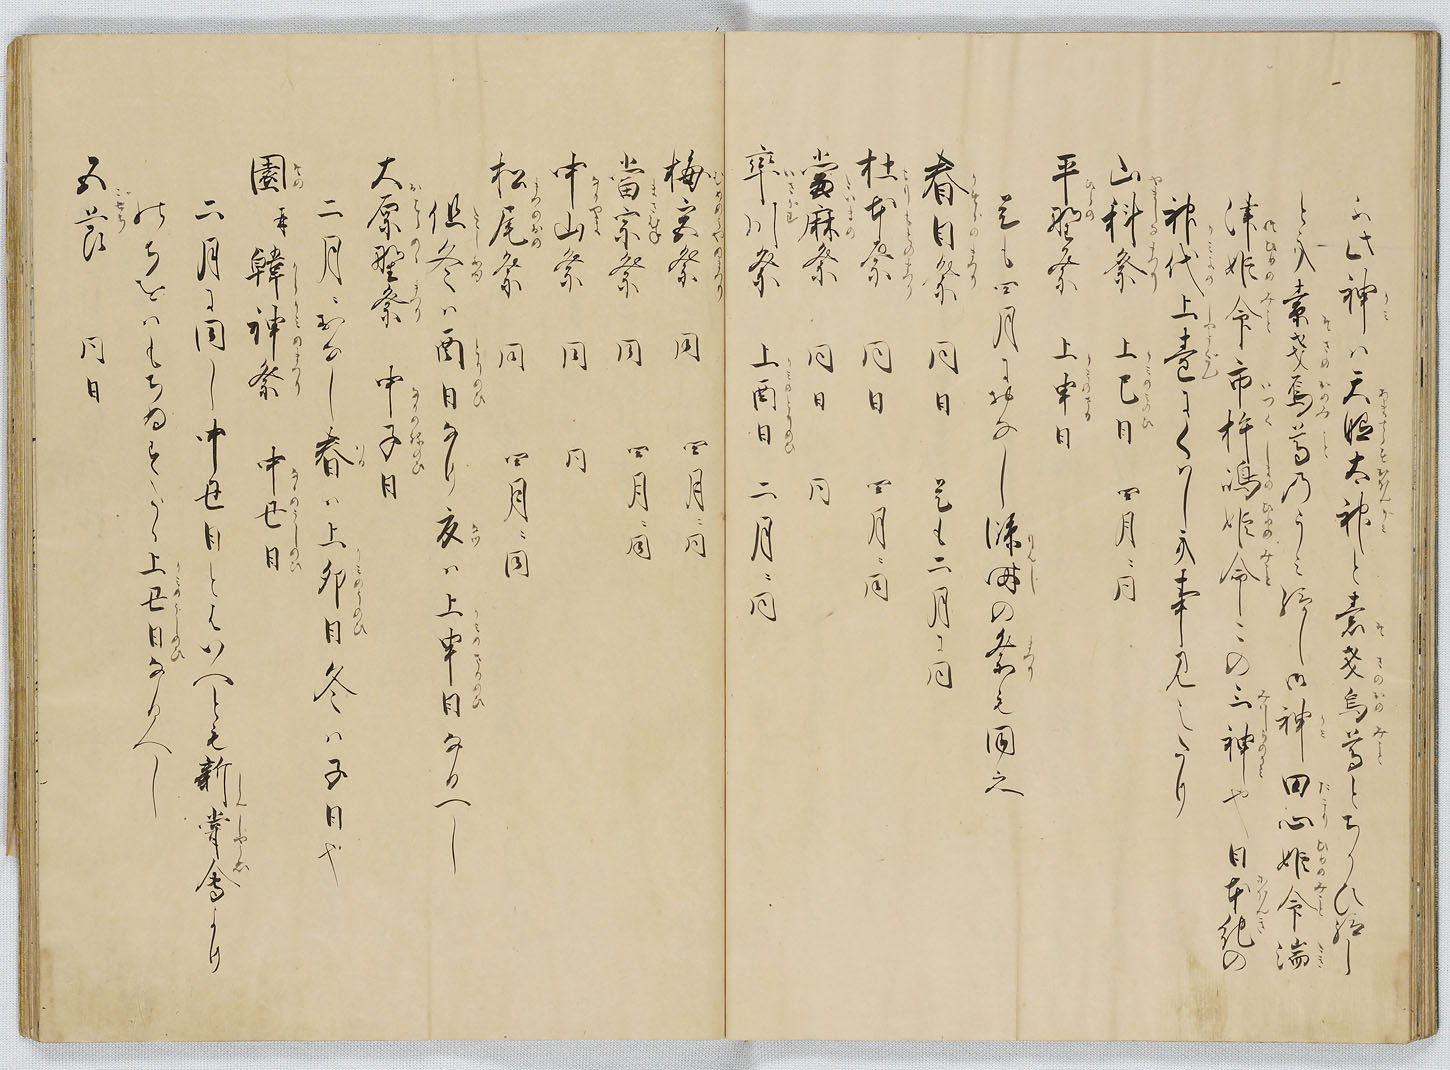 此神は天照太神と素戔烏尊とちかひ給し
とき素戔烏尊のうみ給し御神田心姫命湍
津姫命市杵嶋姫命この三神也日本紀の
神代上巻にくはしき事見えたり
山科祭 上巳日 四月ニ同
平野祭 上申日
是も四月におなし臨時の祭も同之
春日祭 同日 是も二月に同
杜本祭 同日 四月ニ同
當麻祭 同日 同
率川祭 上酉日 二月ニ同
梅宮祭 同 四月ニ同
當宗祭 同 四月ニ同
中山祭 同 同
松尾祭 同 四月ニ同
但冬は酉日なり夏は上申日なるへし
大原野祭 中子日
二月ニおなし春は上卯日冬は子日也
園并韓神祭 中丑日
二月に同し中丑日とはいへとも新嘗會より
上丑日なるへし
五節 同日